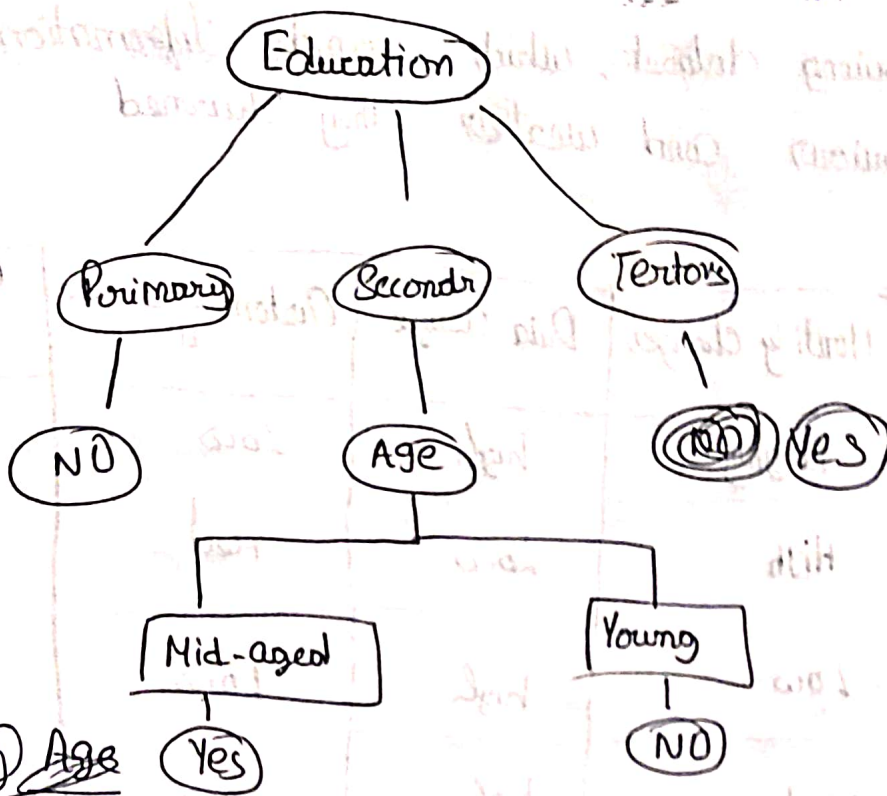 Education
Primary Secondr Tertory
NO Age NO Yes
Mid-aged Young
Age Yes NO